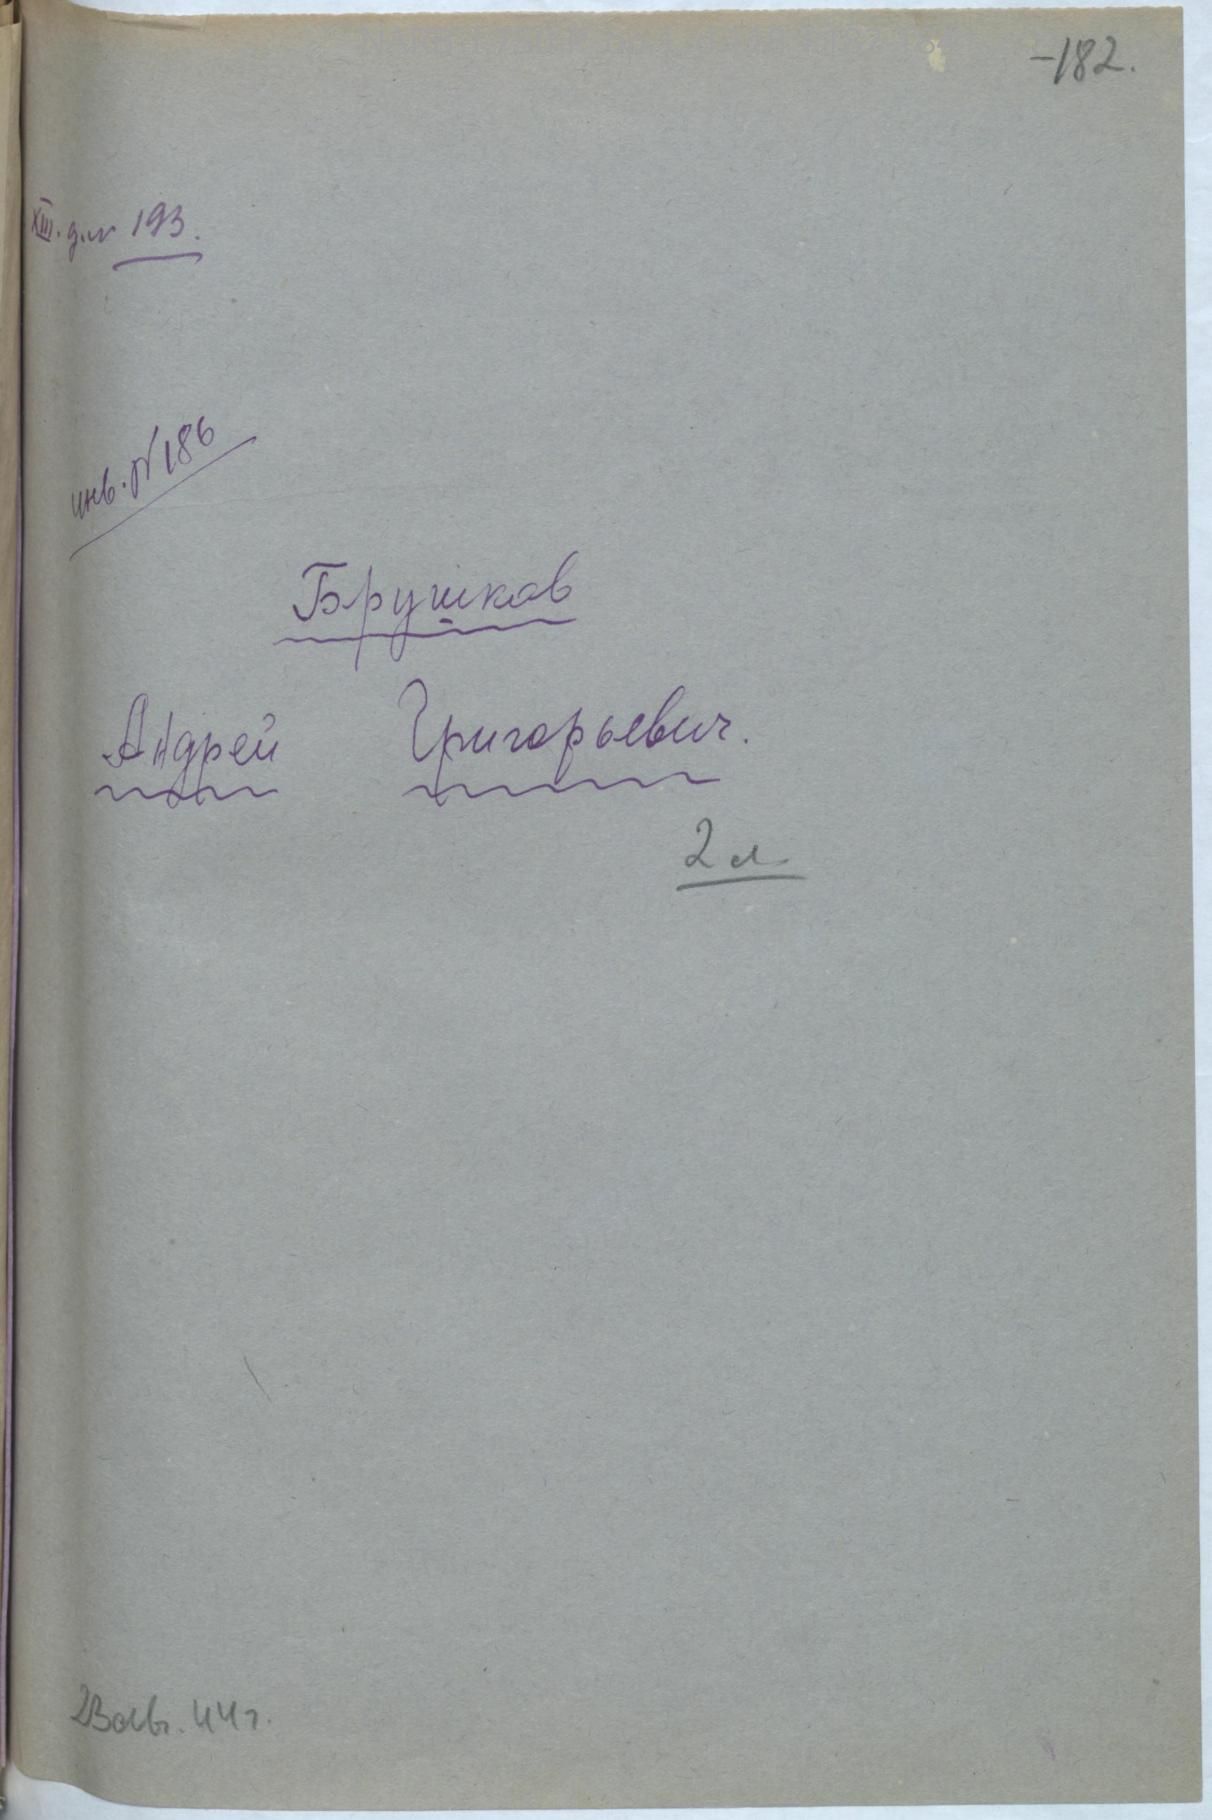 -182.
XIII. д. № 193.
инв. № 186
Брушков
Андрей Григорьевич.
2 л
44 г.